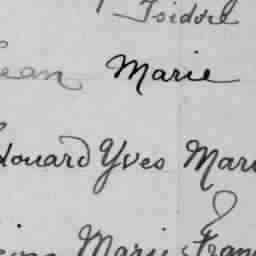 Isidore
ean Marie
douard Yves Mari
Marie Fran